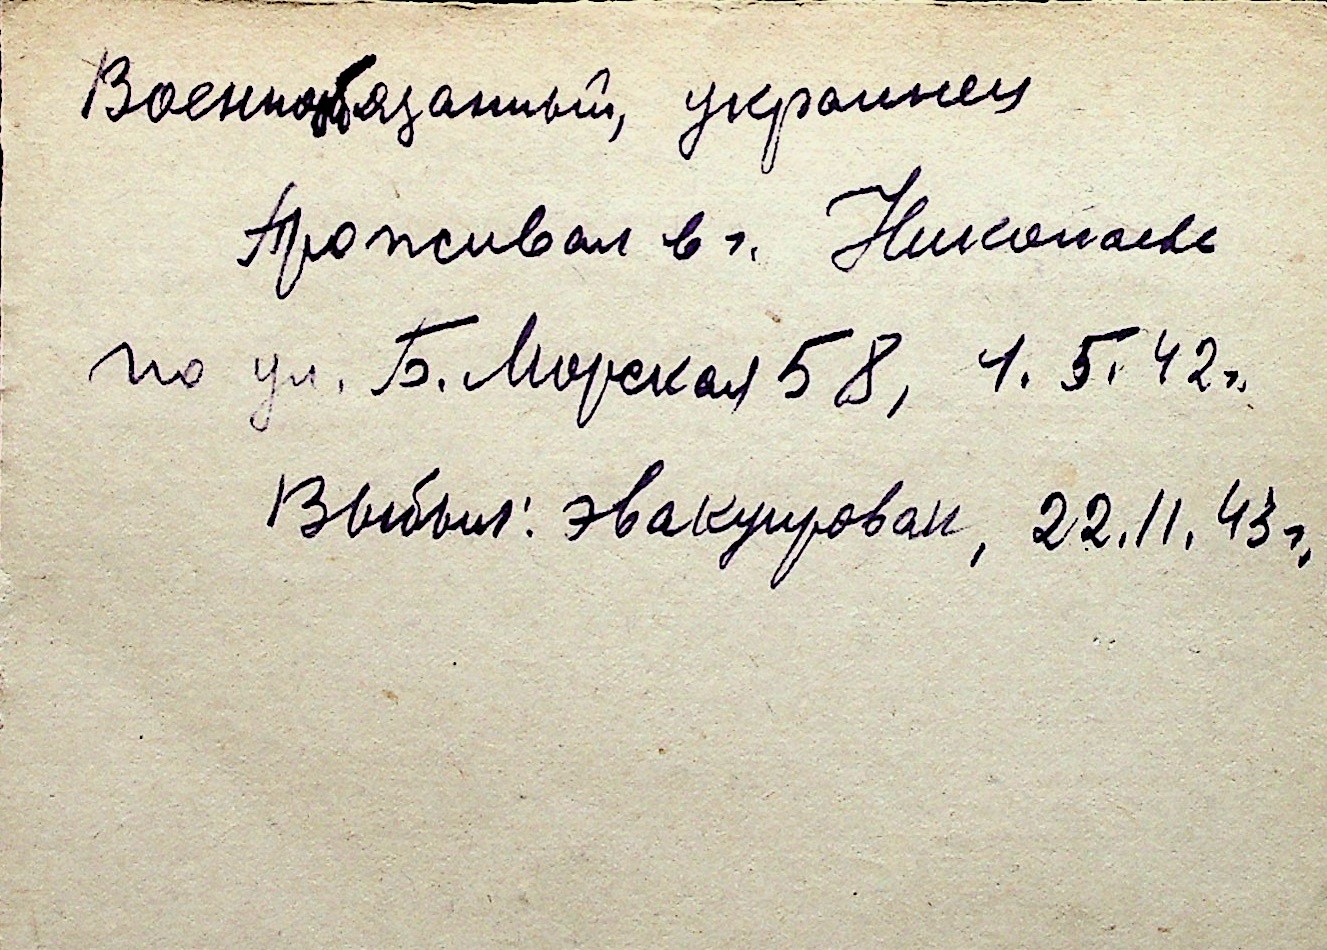 Военнообязанный, украинец
Проживал в г. Николаеве
по ул. Б. Морская 58, 1. 5. 42 г.
Выбыл: эвакуирован, 22. 11. 43 г.